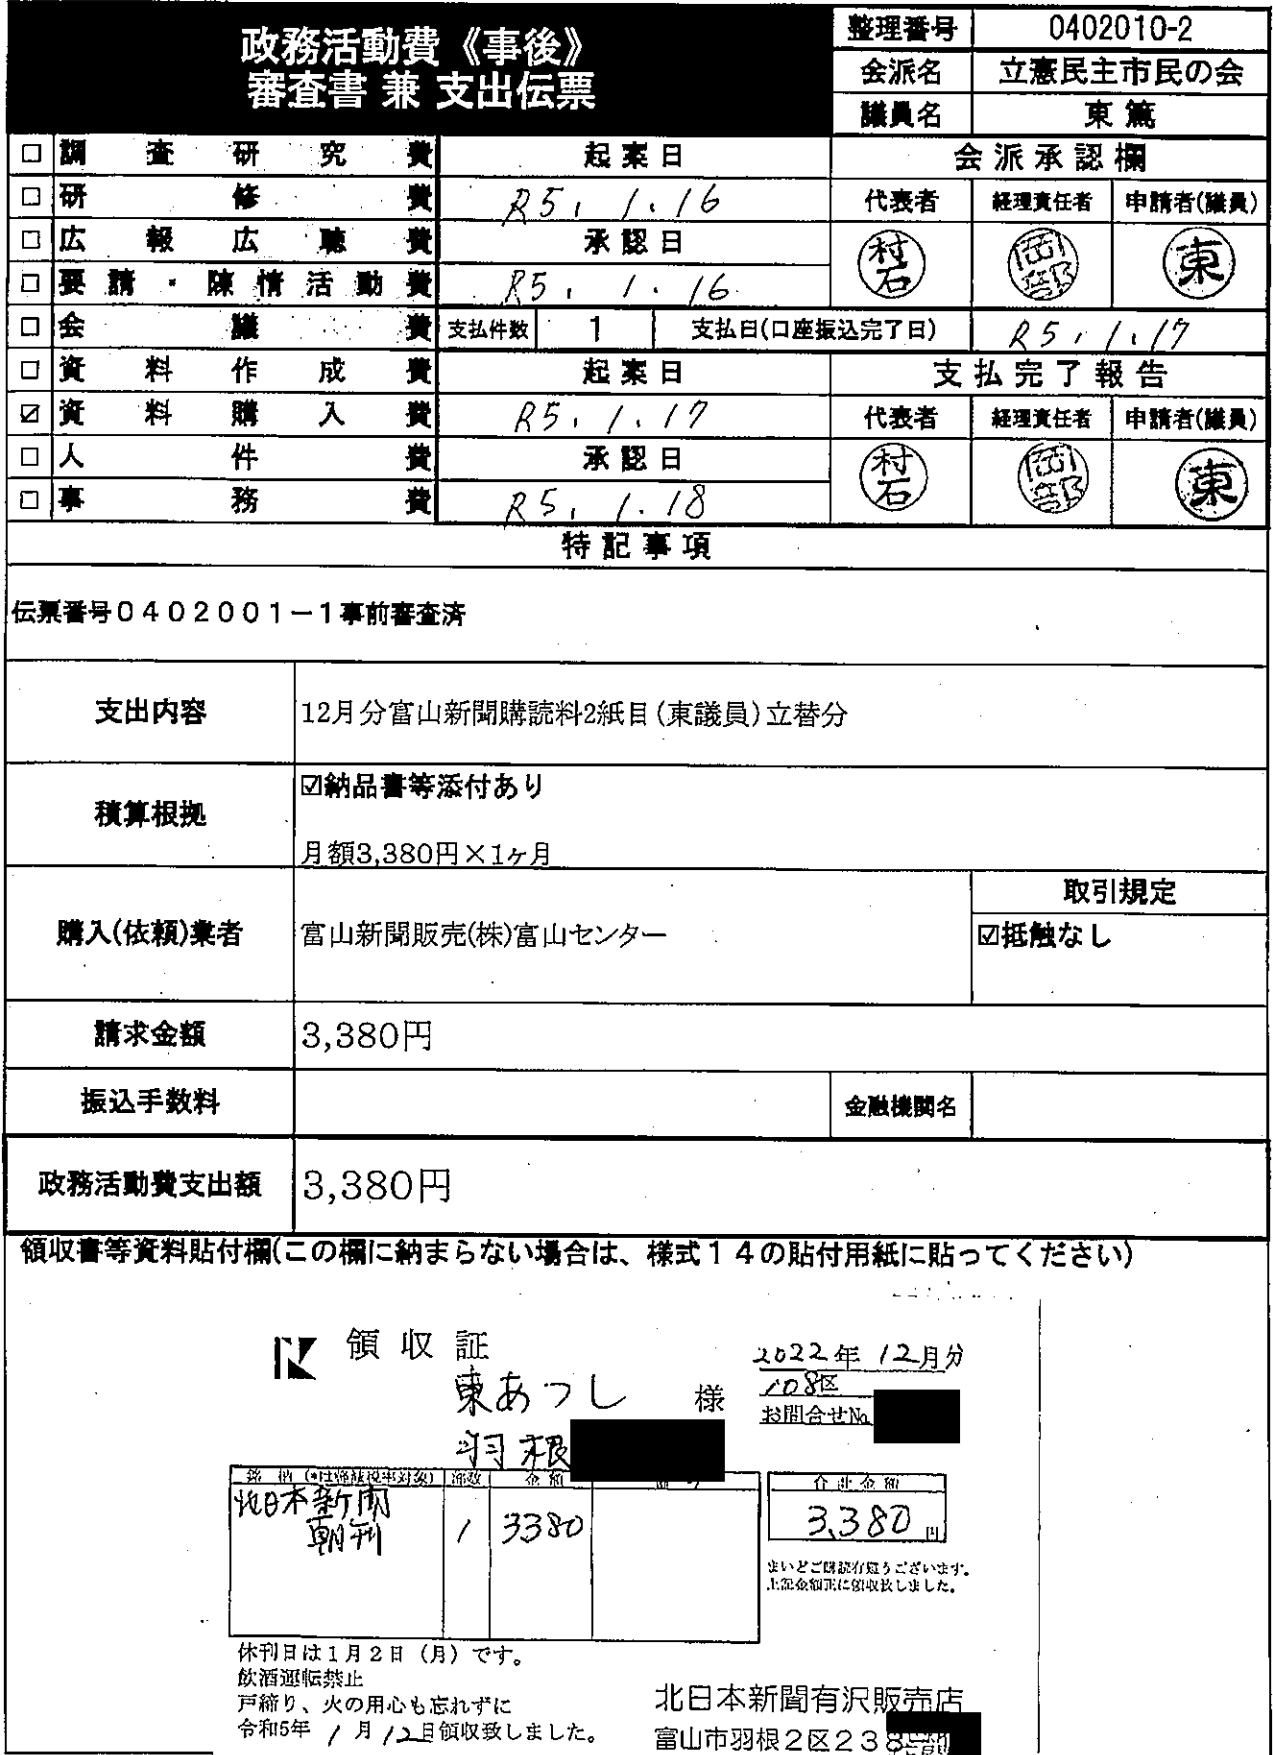 政務活動費《事後》
審査書 兼 支出伝票
整理番号 0402010-2
会派名 立憲民主市民の会
議員名 東 篤
□ 調査研究費
□ 研修費
□ 広報広聴費
□ 要請・陳情活動費
□ 会議費
□ 資料作成費
☑ 資料購入費
□ 人件費
□ 事務費
起案日
R5.1.16
承認日
R5.1.16
会派承認欄
代表者 経理責任者 申請者(議員)
村石 岡部 東
支払件数 1 支払日(口座振込完了日) R5.1.17
起案日
R5.1.17
承認日
R5.1.18
支払完了報告
代表者 経理責任者 申請者(議員)
村石 岡部 東
特記事項
伝票番号0402001-1事前審査済
支出内容 12月分富山新聞購読料2紙目(東議員)立替分
積算根拠 ☑納品書等添付あり
月額3,380円×1ヶ月
購入(依頼)業者 富山新聞販売(株)富山センター
取引規定
☑抵触なし
請求金額 3,380円
振込手数料 金融機関名
政務活動費支出額 3,380円
領収書等資料貼付欄(この欄に納まらない場合は、様式14の貼付用紙に貼ってください)
領収証
2022年12月分
108区
お問合せNo.
東あつし 様
羽根
銘柄(*は軽減税率対象) 部数 金額
北日本新聞
朝刊 1 3380
合計金額
3,380円
まいどご購読有難うございます。
上記金額正に領収致しました。
休刊日は1月2日(月)です。
飲酒運転禁止
戸締り、火の用心も忘れずに
令和5年1月12日領収致しました。
北日本新聞有沢販売店
富山市羽根2区238